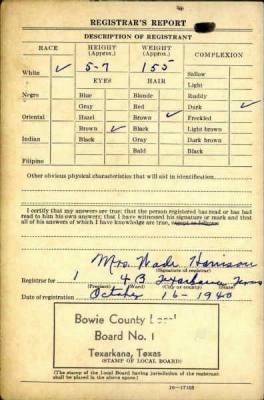 REGISTRAR'S REPORT
DESCRIPTION OF REGISTRANT
RACE HEIGHT (Approx.) WEIGHT (Approx.) COMPLEXION
White ✓ 5-7 155 Sallow
Light
EYES HAIR
Negro Blue Blonde Ruddy
Gray Red Dark ✓
Oriental Hazel Brown ✓ Freckled
Brown ✓ Black Light brown
Indian Black Gray Dark brown
Bald Black
Filipino
Other obvious physical characteristics that will aid in identification
I certify that my answers are true; that the person registered has read or has had
read to him his own answers; that I have witnessed his signature or mark and that
all of his answers of which I have knowledge are true, except as follows:
Mrs. Wade Harrison
(Signature of registrar)
Registrar for 1 4 B Texarkana Texas
(Precinct) (Ward) (City or county) (State)
Date of registration October 16-1940
Bowie County Local
Board No. 1
Texarkana, Texas
(STAMP OF LOCAL BOARD)
(The stamp of the Local Board having jurisdiction of the registrant
shall be placed in the above space.)
16-17105